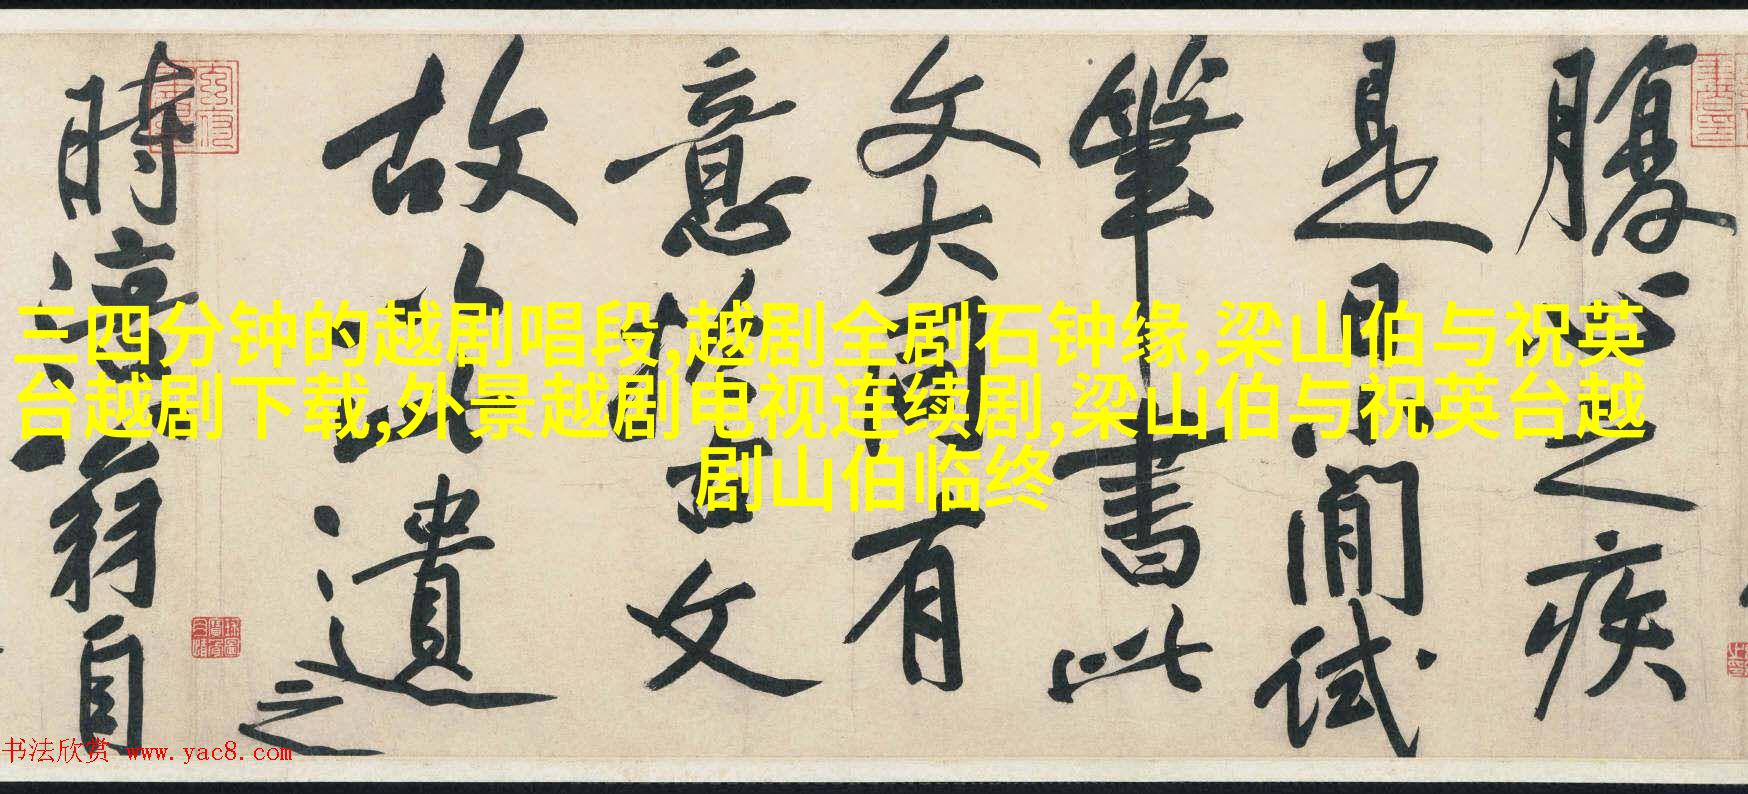 腹心之疾
是日小閒試
筆書此
文大有
意於古文
故以遺之
時涪翁自
三四分钟的越剧唱段,越剧全剧石钟缘,梁山伯与祝英
台越剧下载,外景越剧电视连续剧,梁山伯与祝英台越
剧山伯临终
书法欣赏 www.yac8.com